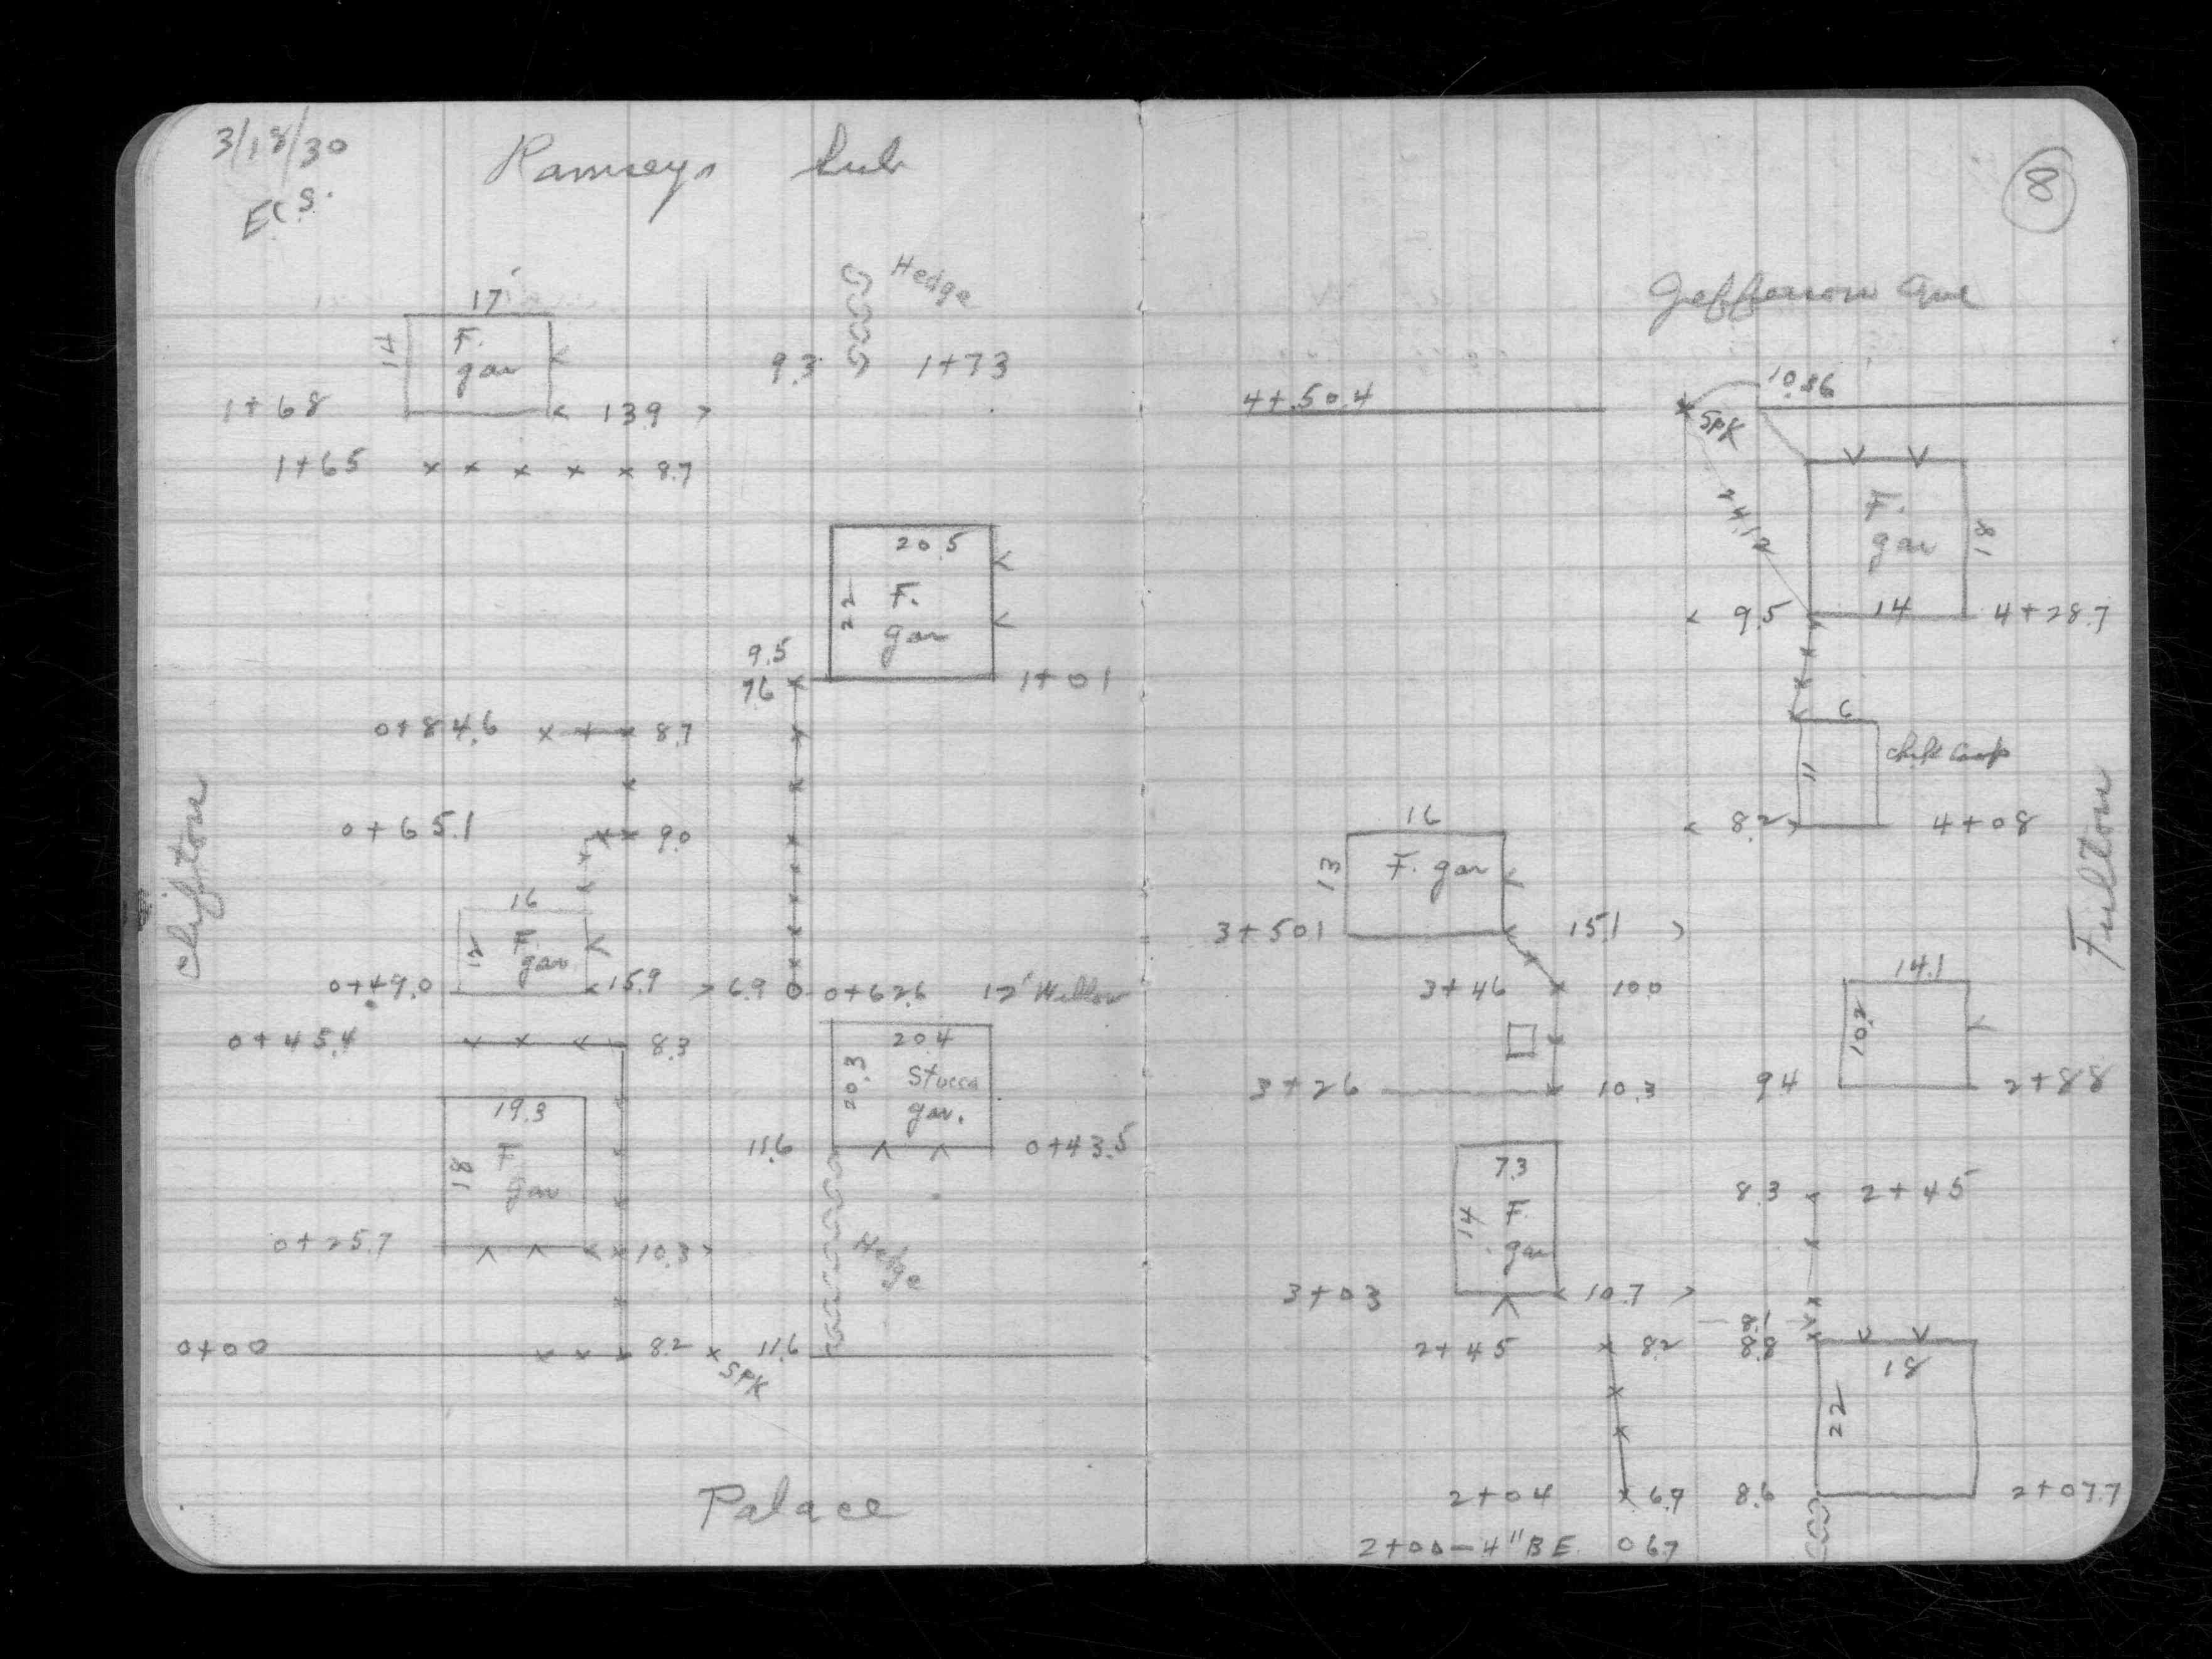 3/18/30
E.C.S.
Ramseys Sub
Hedge
17'
14
F.
gar
9.3
1+73
1+68
13.9
1+65
8.7
20.5
22
F.
gar
9.5
7.6
1+01
0+84.6
8.7
0+65.1
9.0
Clifton
16
12
F.
gar
0+49.0
15.9
6.9
0+62.6
12" Willow
0+45.4
8.3
20.4
20.3
Stucco
gar.
19.3
18
F
gar
11.6
0+43.5
0+25.7
10.3
Hedge
0+00
8.2
SPK
11.6
Palace
8
Jefferson Ave
4+50.4
10.86
SPK
24.12
F.
gar
18
9.5
14
4+28.7
6
chick coop
11
8.2
4+08
Fulton
16
13
F. gar
3+50.1
15.1
3+46
10.0
14.1
10.2
3+26
10.3
9.4
2+88
7.3
14
F.
gar
8.3
2+45
3+03
10.7
8.1
2+45
8.2
8.8
18
22
2+04
6.7
8.6
2+07.7
2+00-4" B E. 0 6.7